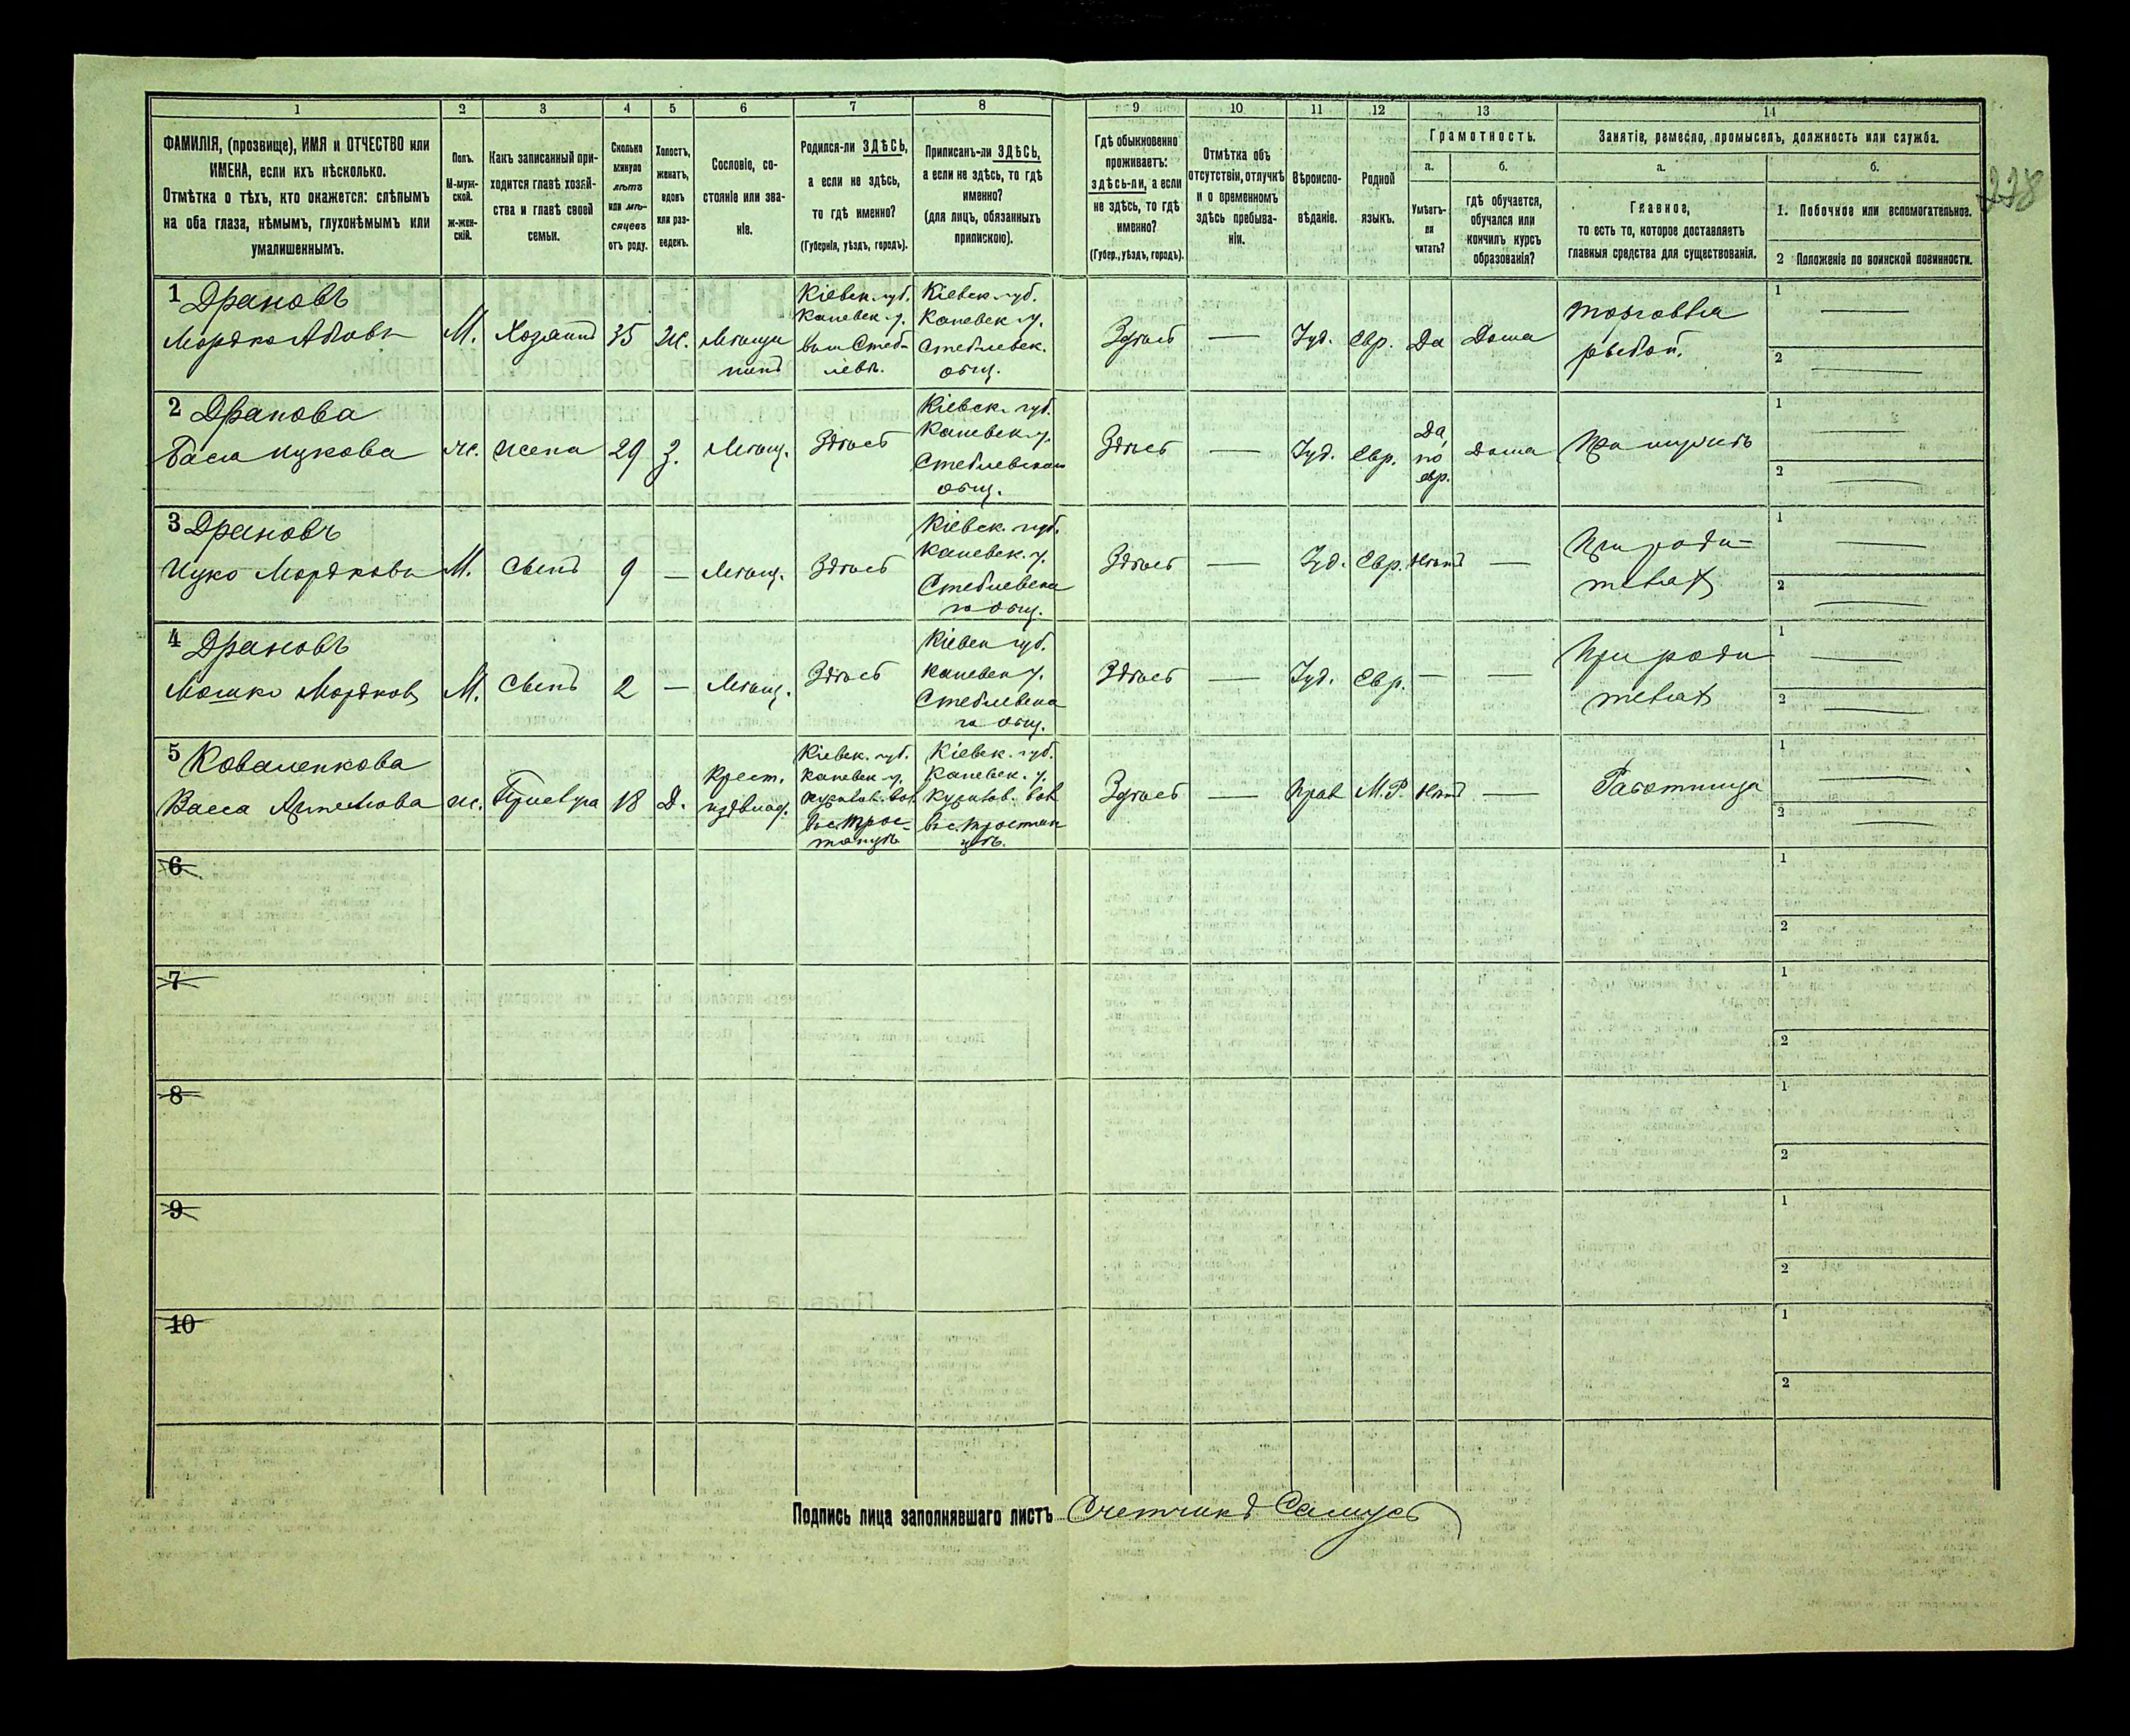 1 2 3 4 5 6 7 8 9 10 11 12 13 14
ФАМИЛІЯ, (прозвище), ИМЯ и ОТЧЕСТВО или
ИМЕНА, если ихъ нѣсколько.
Отмѣтка о тѣхъ, кто окажется: слѣпымъ
на оба глаза, нѣмымъ, глухонѣмымъ или
умалишеннымъ.
Полъ.
М-муж-
ской.
Ж-жен-
скій.
Какъ записанный при-
ходится главѣ хозяй-
ства и главѣ своей
семьи.
Сколько
минуло
лѣтъ
или мѣ-
сяцевъ
отъ роду.
Холостъ,
женатъ,
вдовъ
или раз-
веденъ.
Сословіе, со-
стояніе или зва-
ніе.
Родился-ли ЗДѢСЬ,
а если не здѣсь,
то гдѣ именно?
(Губернія, уѣздъ, городъ).
Приписанъ-ли ЗДѢСЬ,
а если не здѣсь, то гдѣ
именно?
(для лицъ, обязанныхъ
припискою).
Гдѣ обыкновенно
проживаетъ:
здѣсь-ли, а если
не здѣсь, то гдѣ
именно?
(Губер., уѣздъ, городъ).
Отмѣтка объ
отсутствіи, отлучкѣ
и о временномъ
здѣсь пребыва-
ніи.
Вѣроиспо-
вѣданіе.
Родной
языкъ.
Грамотность.
а.
Умѣетъ-
ли
читать?
б.
гдѣ обучается,
обучался или
кончилъ курсъ
образованія?
Занятіе, ремесло, промыселъ, должность или служба.
а.
Главное,
то есть то, которое доставляетъ
главныя средства для существованія.
б.
1. Побочное или вспомогательное.
2 Положеніе по воинской повинности.
228
1 Драновъ
Мордко Абовъ
М.
Хозяинъ
35
Ж.
Мѣща
нинъ
Кіевск. губ.
Каневск. у.
в м Стеб-
левѣ.
Кіевск. губ.
Каневск. у.
Стеблевск.
общ.
Здѣсь
—
Іуд.
Евр.
Да
Дома
Торговля
рыбой.
1 —
2 —
2 Дранова
Бася Ицкова
Ж.
Жена
29
З.
Мѣщ.
Здѣсь
Кіевск. губ.
Каневск. у.
Стеблевскаго
общ.
Здѣсь
—
Іуд.
Евр.
Да,
по
евр.
Дома
При мужѣ
1 —
2 —
3 Драновъ
Ицко Мордковъ
М.
Сынъ
9
—
Мѣщ.
Здѣсь
Кіевск. губ.
Каневск. у.
Стеблевска
го общ.
Здѣсь
—
Іуд.
Евр.
Нѣтъ
—
При роди-
телях
1 —
2 —
4 Драновъ
Мошко Мордков
М.
Сынъ
2
—
Мѣщ.
Здѣсь
Кіевск губ.
Каневск у.
Стеблевска
го общ.
Здѣсь
—
Іуд.
Евр.
—
—
При роди
телях
1 —
2 —
5 Коваленкова
Васса
Ж.
Прислуга
18
Д.
Крест.
Кіевск. губ.
Каневск. у.
вол.
в с. Трос-
тянцѣ
Кіевск. губ.
Каневск. у.
вол
в с. Тростян
цѣ.
Здѣсь
—
Прав
М.Р.
Нѣтъ
—
Работница
1 —
2 —
6
1
2
7
1
2
8
1
2
9
1
2
10
1
2
Подпись лица заполнявшаго листъ Счетчикъ Самусь